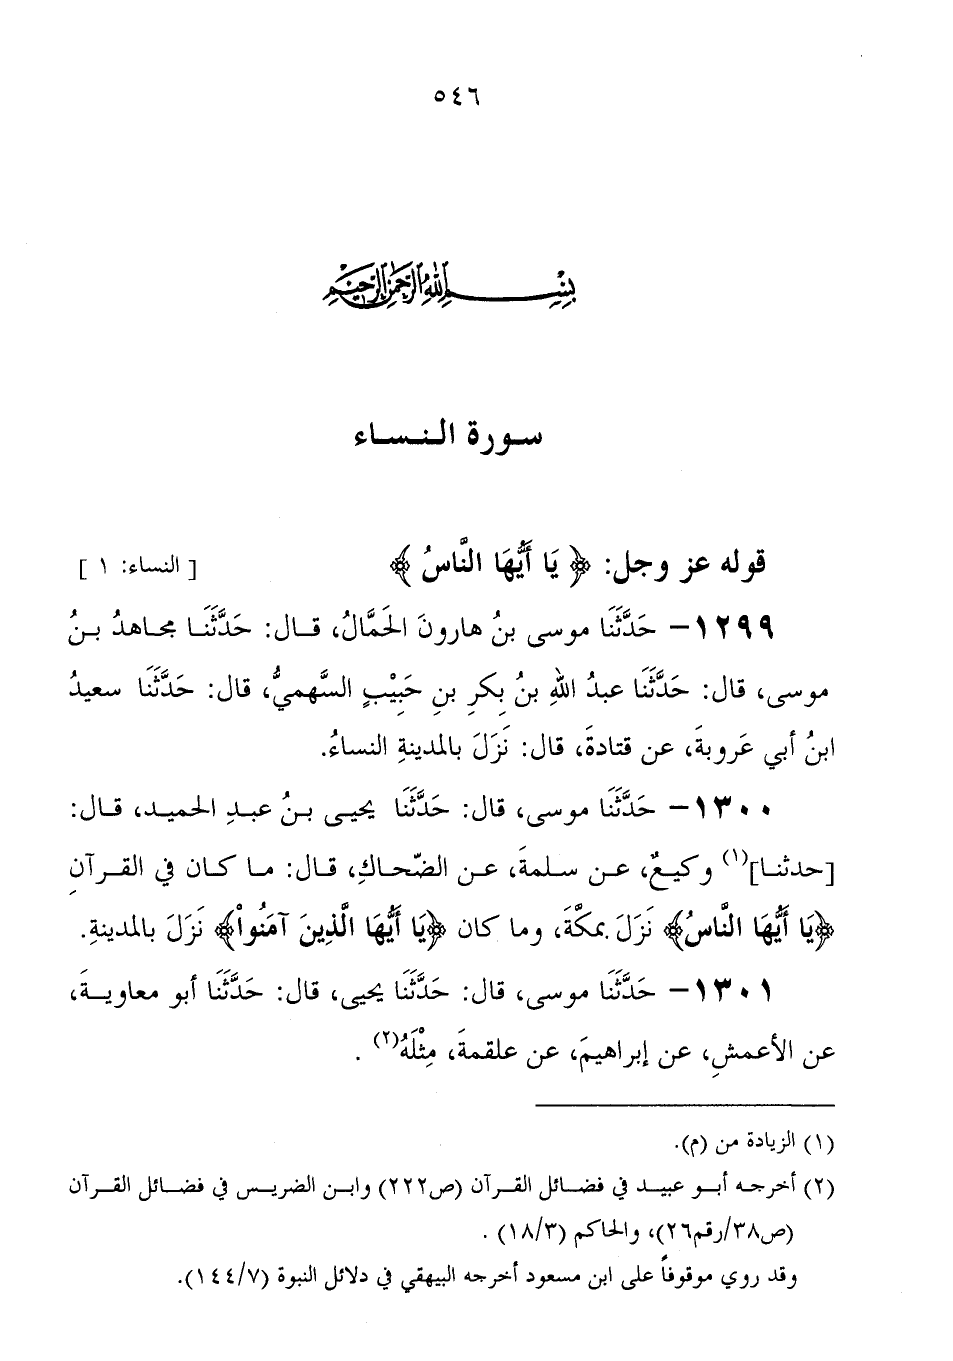 ٥٤٦
بِسْمِ اللهِ الرَّحْمَنِ الرَّحِيمِ
سورة النساء
قوله عز وجل: ﴿ يَا أَيُّهَا النَّاسُ ﴾ [ النساء: ١ ]
١٢٩٩- حَدَّثَنَا موسى بنُ هارونَ الحَمَّالُ، قال: حَدَّثَنَا مجاهدُ بنُ
موسى، قال: حَدَّثَنَا عبدُ اللهِ بنُ بكرِ بنِ حَبِيْبٍ السَّهميُّ، قال: حَدَّثَنَا سعيدُ
ابنُ أبي عَروبةَ، عن قتادةَ، قال: نَزَلَ بالمدينةِ النساءُ.
١٣٠٠- حَدَّثَنَا موسى، قال: حَدَّثَنَا يحيى بنُ عبدِ الحميد، قال:
[حدثنا](١) وكيعٌ، عن سلمةَ، عن الضّحاكِ، قال: ما كان في القرآنِ
﴿يَا أَيُّهَا النَّاسُ﴾ نَزَلَ بمكَّةَ، وما كان ﴿يَا أَيُّهَا الَّذِينَ آمَنُواْ﴾ نَزَلَ بالمدينةِ.
١٣٠١- حَدَّثَنَا موسى، قال: حَدَّثَنَا يحيى، قال: حَدَّثَنَا أبو معاويةَ،
عن الأعمشِ، عن إبراهيمَ، عن علقمةَ، مِثْلَهُ(٢) .
(١) الزيادة من (م).
(٢) أخرجه أبو عبيد في فضائل القرآن (ص٢٢٢) وابن الضريس في فضائل القرآن
(ص٣٨/رقم٢٦)، والحاكم (١٨/٣) .
وقد روي موقوفاً على ابن مسعود أخرجه البيهقي في دلائل النبوة (١٤٤/٧).